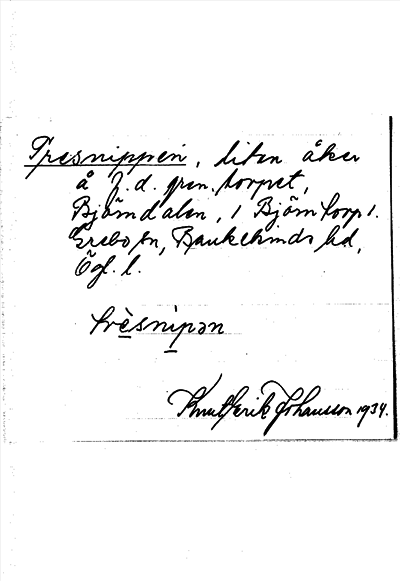 Tresnippen, liten åker
å f.d. gren. torpet,
Björndalen, 1 Björntorp 1.
Grebo sn, Bankekinds hd,
Ögl. l.
trèsnìpən
Knut Erik Johansson 1934.